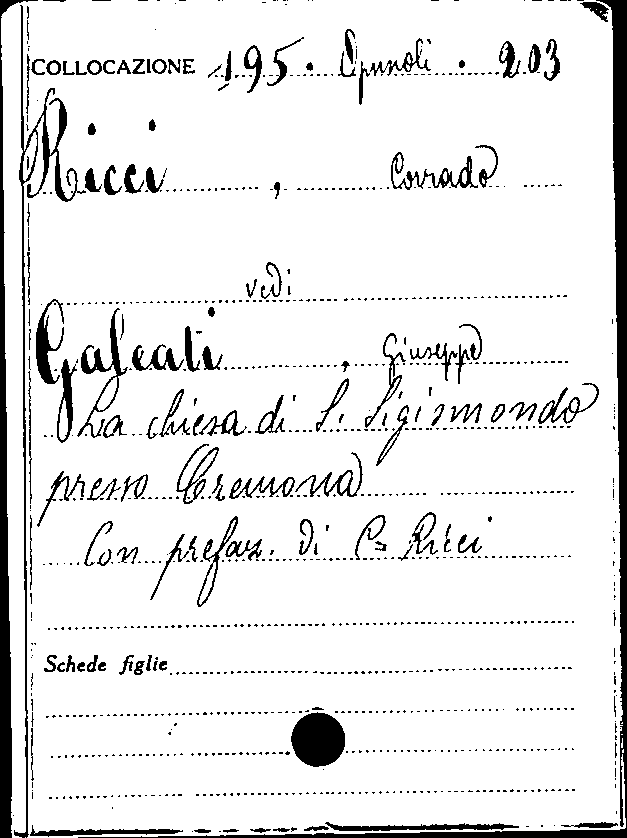 COLLOCAZIONE 195 · Opuscoli · 203
Ricci, Corrado
vedi
Galeati, Giuseppe
La chiesa di S. Sigismondo
presso Cremona
Con prefaz. di C. Ricci
Schede figlie